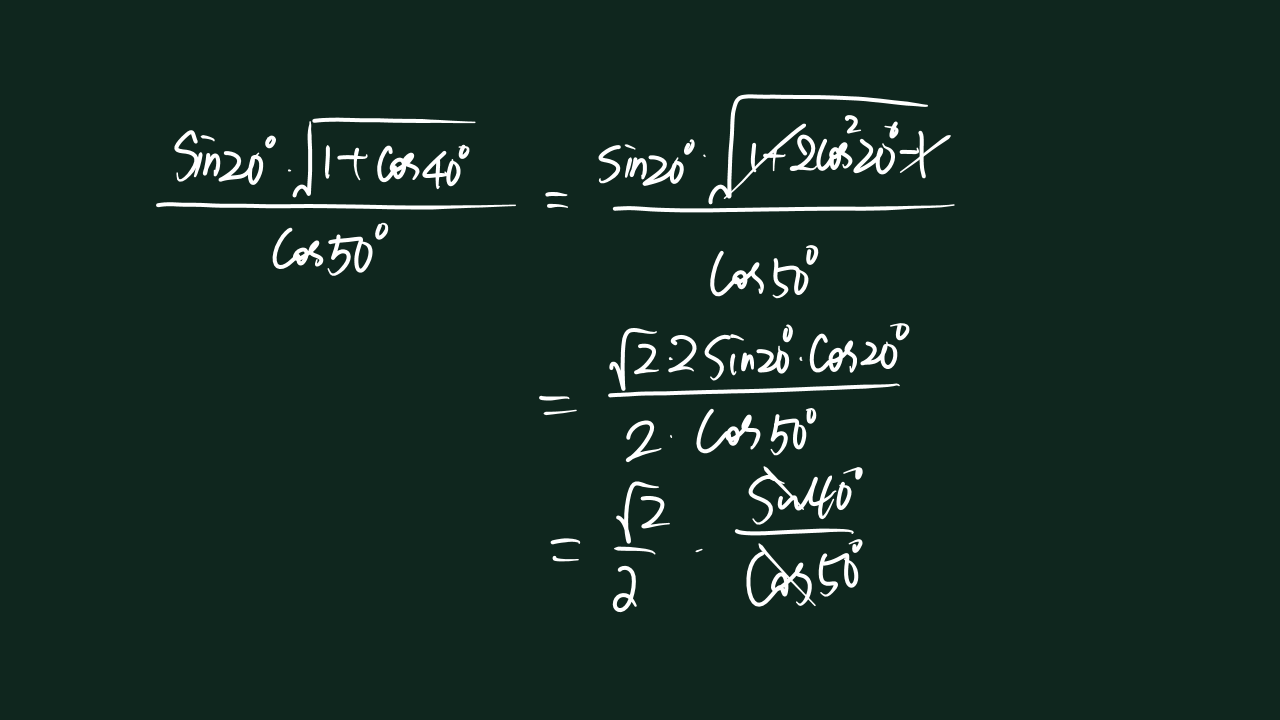 Sin20°·√(1+Cos40°) / Cos50° = Sin20°·√(1+2Cos²20°-1) / Cos50°
= √2·2Sin20°·Cos20° / 2·Cos50°
= √2/2 · Sin40°/Cos50°